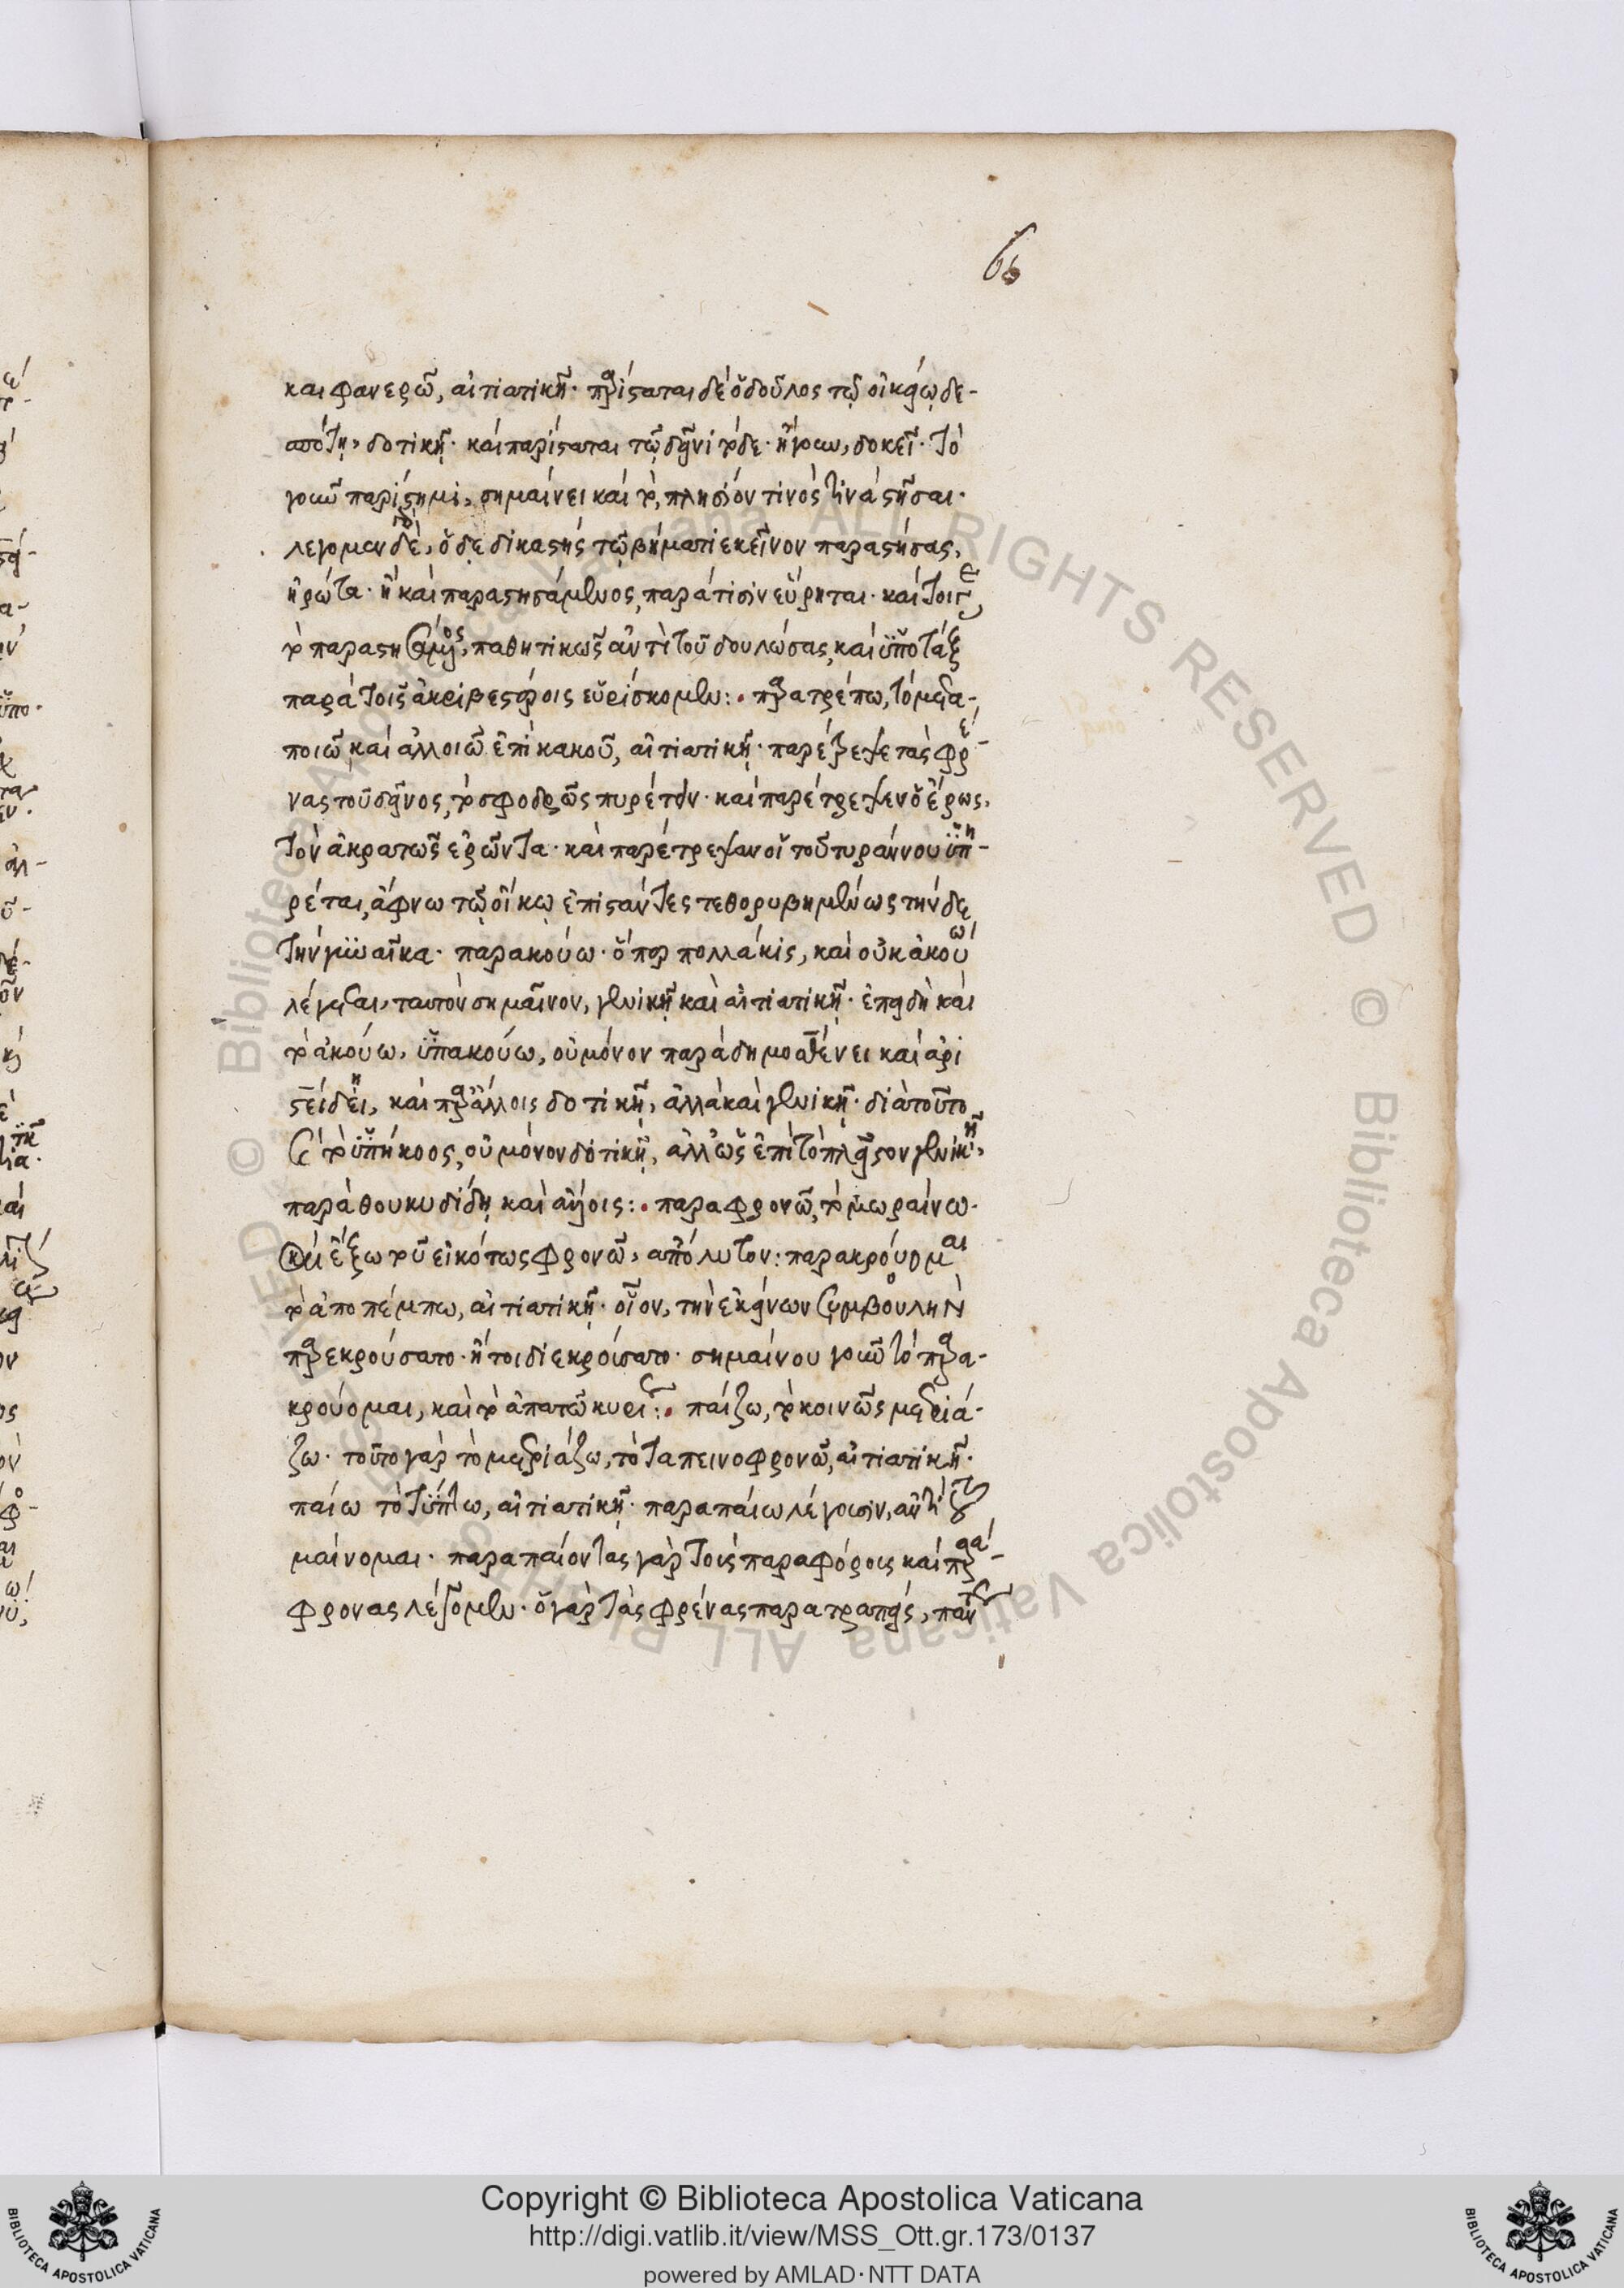 66
και φανερῶ, αἰτιατικῇ· παρίσταται δὲ ὁ δοῦλος τῷ οἰκείῳ δε-
σπότῃ, δοτικῇ· καὶ παρίσταται τῷ δεῖνι τόδε· ἤγουν, δοκεῖ· τὸ
γοῦν παρίστημι, σημαίνει καὶ τὸ, πλησίον τινὸς τινὰ στῆσαι·
λέγομεν δὲ, ὁ δὲ δικαστὴς τῷ βήματι ἐκεῖνον παραστήσας,
ἠρώτα· ἢ καὶ παραστησάμενος, παρά τισιν εὕρηται· καὶ
τὸ παραστησάμενος, παθητικῶς ἀντὶ τοῦ δουλώσας, καὶ ὑποτάξας
παρὰ τοῖς ἀκριβεστέροις εὑρίσκομεν: παρατρέπω, τὸ μετα-
ποιῶ καὶ ἀλλοιῶ ἐπὶ κακοῦ, αἰτιατικῇ· παρέτρεψε τὰς φρέ-
νας τοῦ δεῖνος, τὸ σφοδρῶς πυρέττειν· καὶ παρέτρεψεν ὁ ἔρως,
τὸν ἀκρατῶς ἐρῶντα· καὶ παρέτρεψαν οἱ τοῦ τυράννου ὑπη-
ρέται, ἄφνω τῷ οἴκῳ ἐπιστάντες τεθορυβημένως τήνδε
τὴν γυναῖκα· παρακούω· ὅπερ πολλάκις, καὶ οὐκ ἀκούω
λέγεται, ταυτὸν σημαῖνον, γενικῇ καὶ αἰτιατικῇ· ἐπειδὴ καὶ
τὸ ἀκούω, ὑπακούω, οὐ μόνον παρὰ δημοσθένει καὶ ἀρι
στείδῃ, καὶ παρ' ἄλλοις δοτικῇ, ἀλλὰ καὶ γενικῇ· διὰ τοῦτο
καὶ τὸ ὑπήκοος, οὐ μόνον δοτικῇ, ἀλλ' ὡς ἐπὶ τὸ πλεῖστον γενικῇ,
παρὰ θουκυδίδῃ καὶ ἄλλοις: παραφρονῶ, τὸ μωραίνω·
καὶ ἔξω τοῦ εἰκότως φρονῶ, ἀπόλυτον: παρακρούομαι
τὸ ἀποπέμπω, αἰτιατικῇ· οἷον, τὴν ἐκείνων συμβουλὴν
παρεκρούσατο· ἤτοι διεκρούσατο· σημαίνου γοῦν τὸ παρα-
κρούομαι, καὶ τὸ ἀπατῶ κυρίως: παίζω, τὸ κοινῶς μετριά-
ζω· τοῦτο γὰρ τὸ μετριάζω, τὸ ταπεινοφρονῶ, αἰτιατικῇ·
παίω τὸ τύπτω, αἰτιατικῇ· παραπαίω λέγουσιν, ἀντὶ τοῦ
μαίνομαι· παραπαίοντας γὰρ τοὺς παραφόρους καὶ παρά-
φρονας λέγομεν· ὁ γὰρ τὰς φρένας παρατραπεὶς,
Copyright © Biblioteca Apostolica Vaticana
http://digi.vatlib.it/view/MSS_Ott.gr.173/0137
powered by AMLAD·NTT DATA